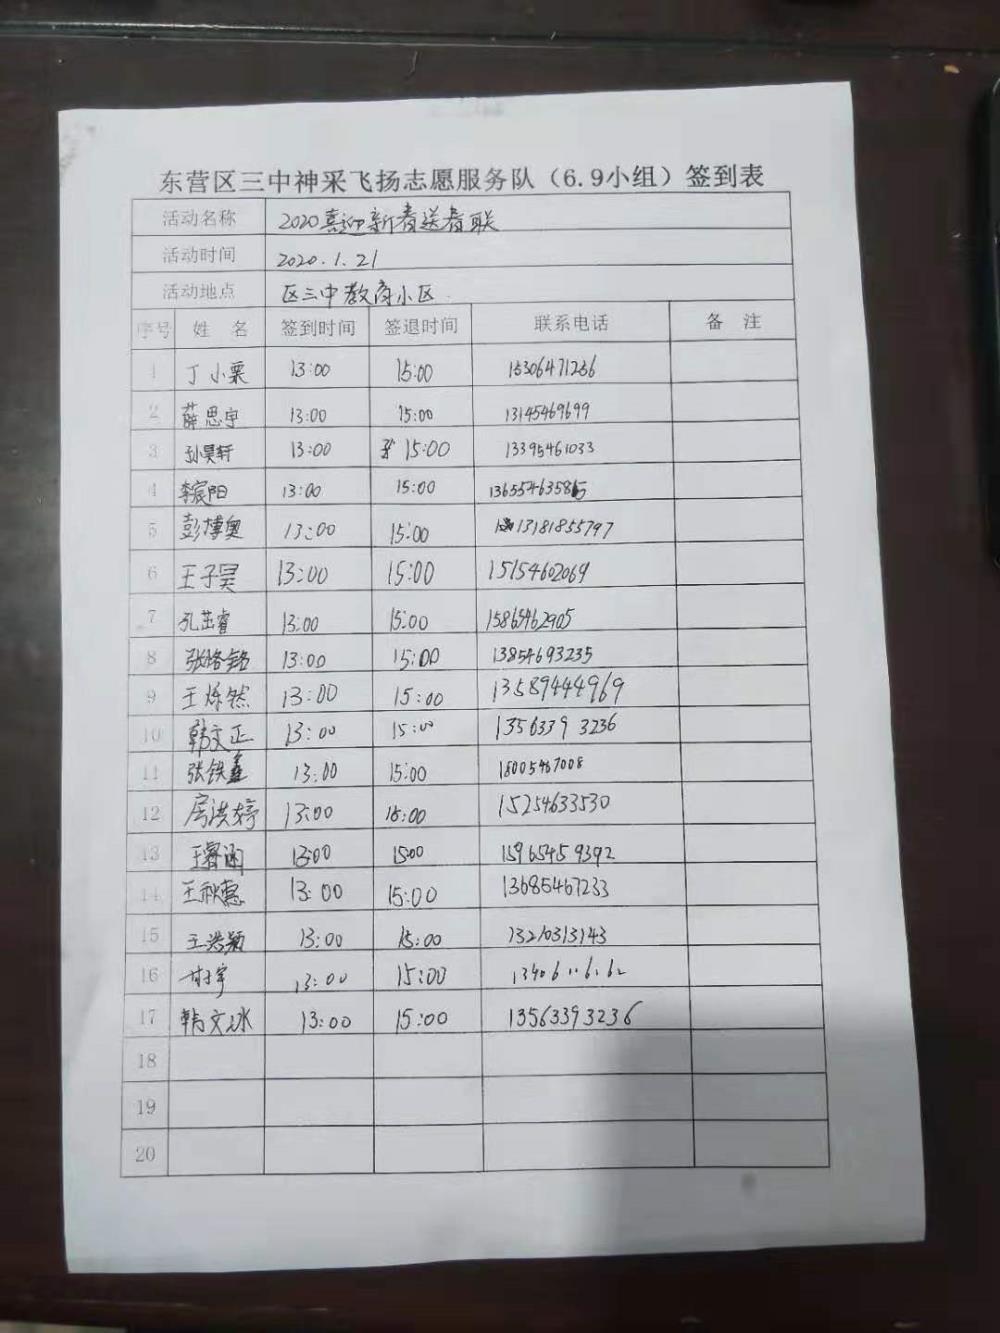 东营区三中神采飞扬志愿服务队（6.9小组）签到表
活动名称 2020喜迎新春送春联
活动时间 2020.1.21
活动地点 区三中教育小区
序号 姓 名 签到时间 签退时间 联系电话 备 注
1 丁小栗 13:00 15:00 15306471236
2 薛思宇 13:00 15:00 13145469699
3 孙昊轩 13:00 15:00 13395461033
4 李宸阳 13:00 15:00
5 彭博奥 13:00 15:00 13181855797
6 王子昊 13:00 15:00 15154602069
7 孔茁睿 13:00 15:00 15865462905
8 张恪铭 13:00 15:00 13854693235
9 王烁然 13:00 15:00 13589444969
10 韩文正 13:00 15:00 1356339 3236
11 张铁鑫 13:00 15:00 18005467008
12 房洪婷 13:00 15:00 15254633530
13 王睿涵 13:00 15:00 15965459392
14 王秋惠 13:00 15:00 13685467233
15 王浩颖 13:00 15:00
16 13:00 15:00
17 韩文冰 13:00 15:00 13563393236
18
19
20